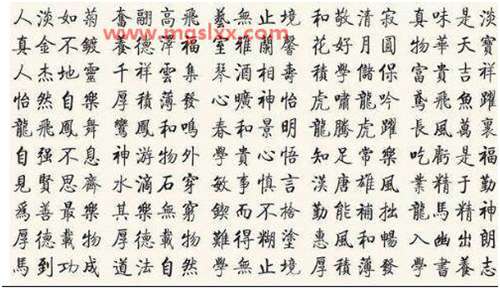 www.mgslxx.com
人淡如菊 奮翮高飛 藝無止境 和敬清寂 真味是淡
真金不鍍 養德澤福 室雅蘭馨 花好月圓 物華天寶
人杰地靈 千祥雲集 琴酒相壽 積學儲保 富貴吉祥
怡然自樂 厚積薄發 心曠神怡 虎嘯龍吟 鳶飛魚躍
龍飛鳳舞 鸞鳳和鳴 春和景明 龍騰虎躍 長風萬裏
自强不息 神游物外 學貴心悟 知足常樂 吃虧是福
見賢思齊 水滴石穿 敏事慎言 漢唐雄風 業精于勤
爲善最樂 其樂無窮 鍥而不捨 勤能補拙 龍馬精神
厚德載物 厚德載物 難得糊塗 惠風和暢 入幽出朗
馬到功成 道法自然 學無止境 厚積薄發 學書養志